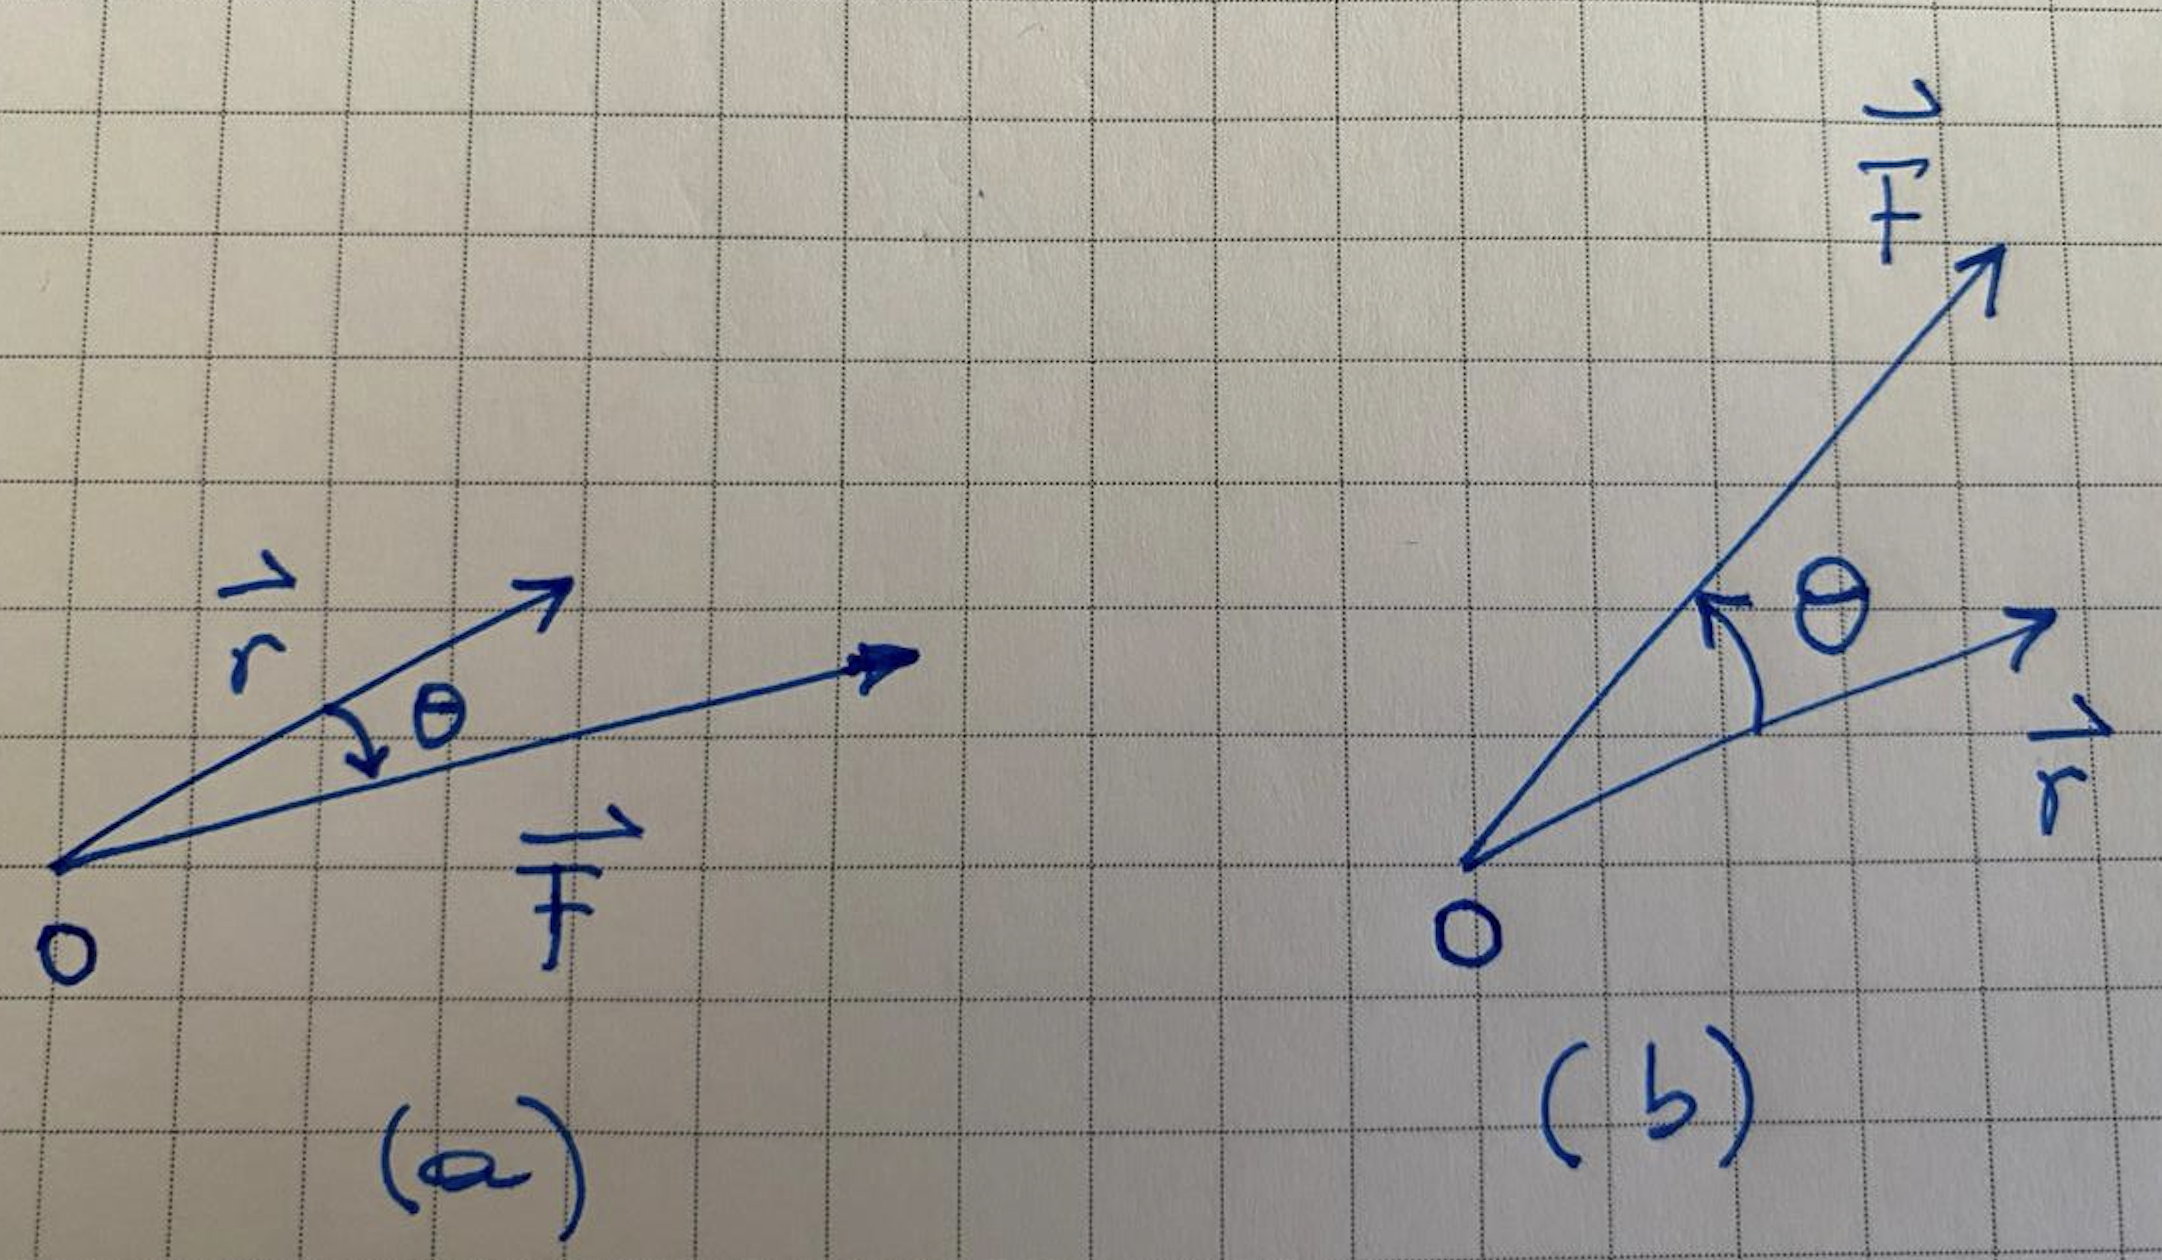 r⃗
θ
F⃗
O
(a)
F⃗
θ
r⃗
O
(b)